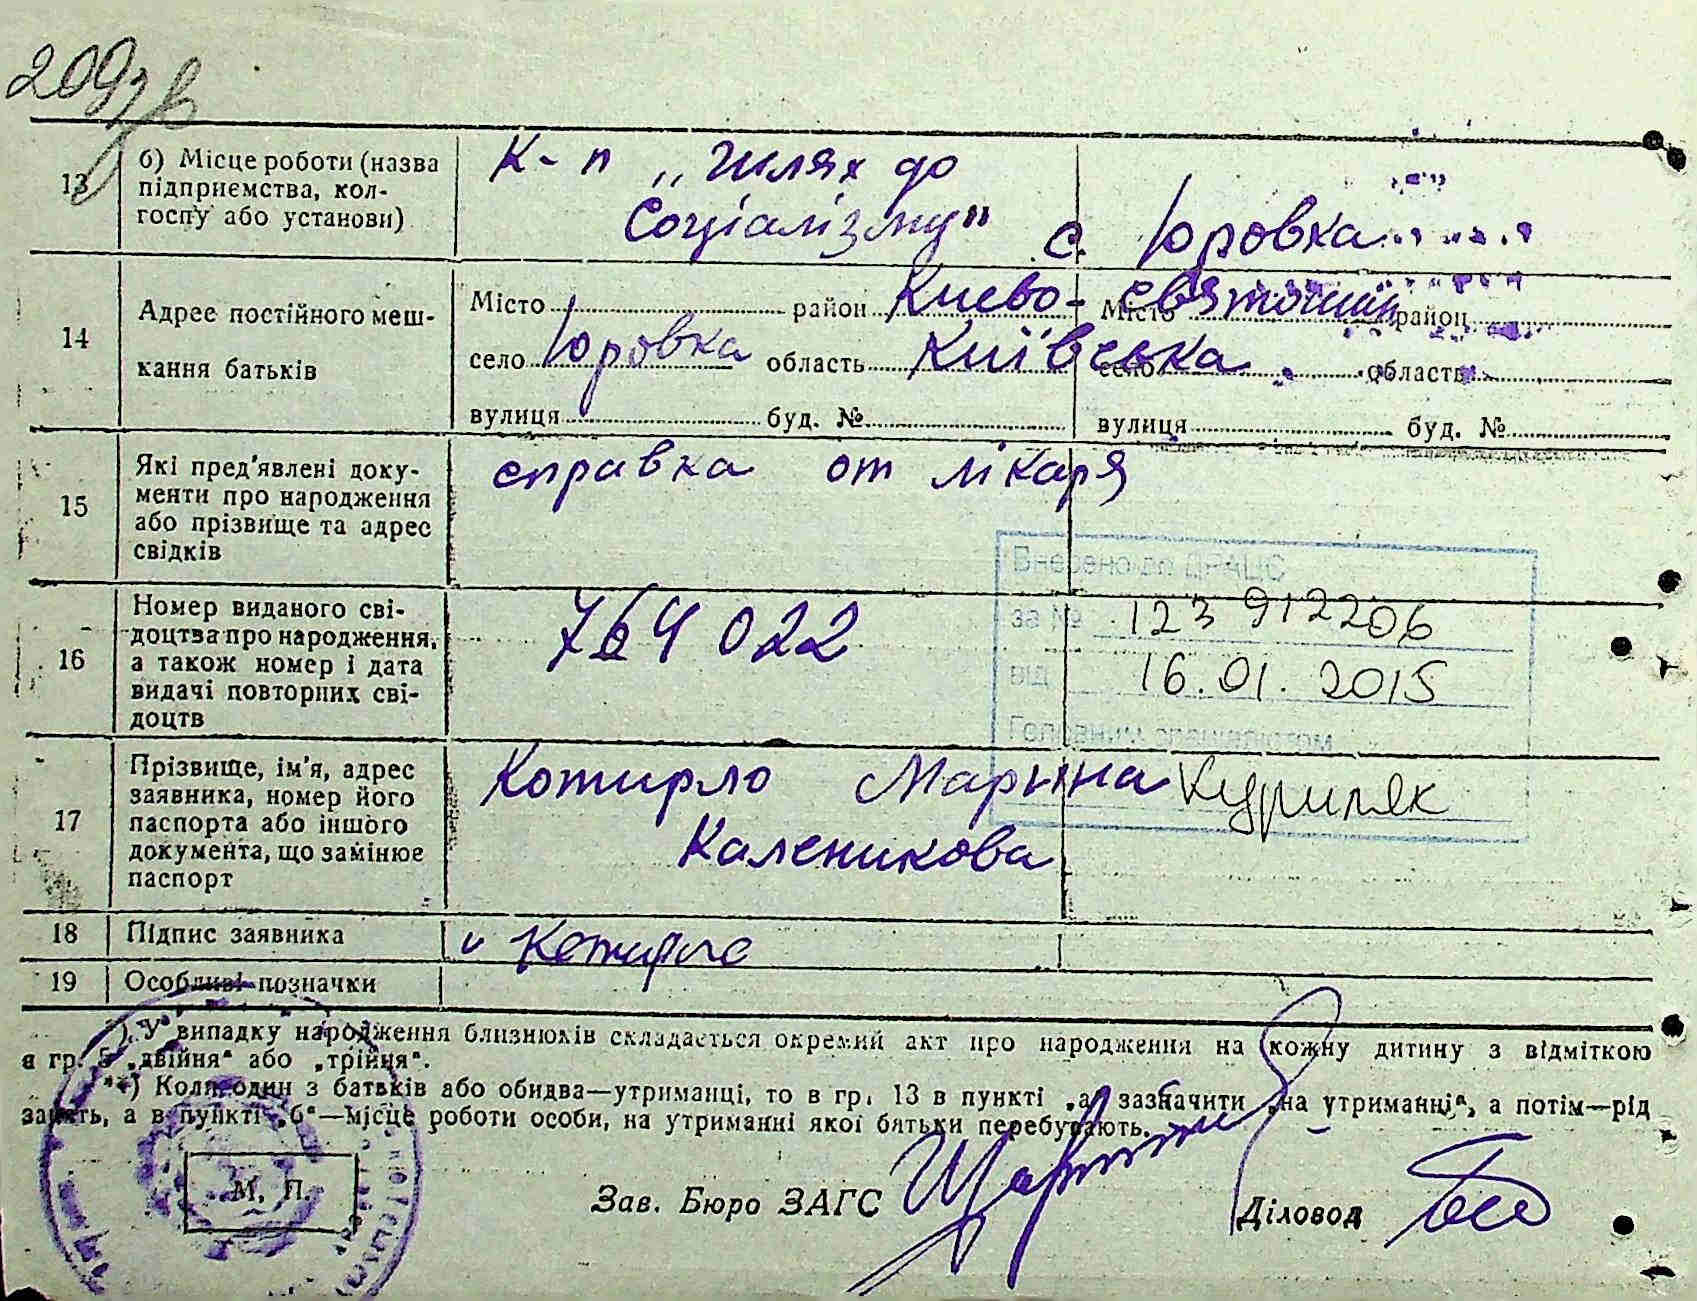 209зв
13 б) Місце роботи (назва підприємства, колгоспу або установи)
К-п „Шлях до
Соціалізму" с. Юровка
14 Адрес постійного мешкання батьків
Місто район Києво-Святошин Місто район
село Юровка область Київська село область
вулиця буд. № вулиця буд. №
15 Які пред'явлені документи про народження або прізвище та адрес свідків
справка от лікаря
Внесено до ДРАЦС
за № 123 912206
від 16.01.2015
Головним спеціалістом
Куриляк
16 Номер виданого свідоцтва про народження, а також номер і дата видачі повторних свідоцтв
764022
17 Прізвище, ім'я, адрес заявника, номер його паспорта або іншого документа, що замінює паспорт
Котирло Марина
Каленикова
18 Підпис заявника Котирло
19 Особливі позначки
*) У випадку народження близнюків складається окремий акт про народження на кожну дитину з відміткою
в гр. 5 „двійня" або „трійня".
**) Коли один з батьків або обидва—утриманці, то в гр. 13 в пункті „а" зазначити „на утриманні", а потім—рід
занять, а в пункті „б"—місце роботи особи, на утриманні якої батьки перебувають.
М. П.
Зав. Бюро ЗАГС
Діловод